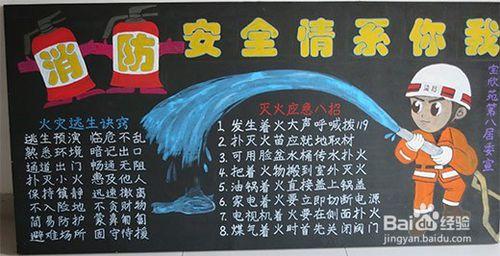 消防 安全情系你我
火灾逃生诀窍
逃生预演 临危不乱
熟悉环境 暗记出口
通道出口 畅通无阻
扑灭小火 惠及他人
保持镇静 迅速撤离
不入险地 不贪财物
简易防护 蒙鼻匍匐
避难场所 固守待援
灭火应急八招
1、发生着火大声呼喊拨119
2、扑灭火苗应就地取材
3、可用脸盆水桶传水扑火
4、把着火物搬到室外灭火
5、油锅着火直接盖上锅盖
6、家电着火要立即切断电源
7、电视机着火要在侧面扑火
8、煤气着火时首先关闭阀门
宝欣苑第八居委宣
Baidu百度经验
jingyan.baidu.com